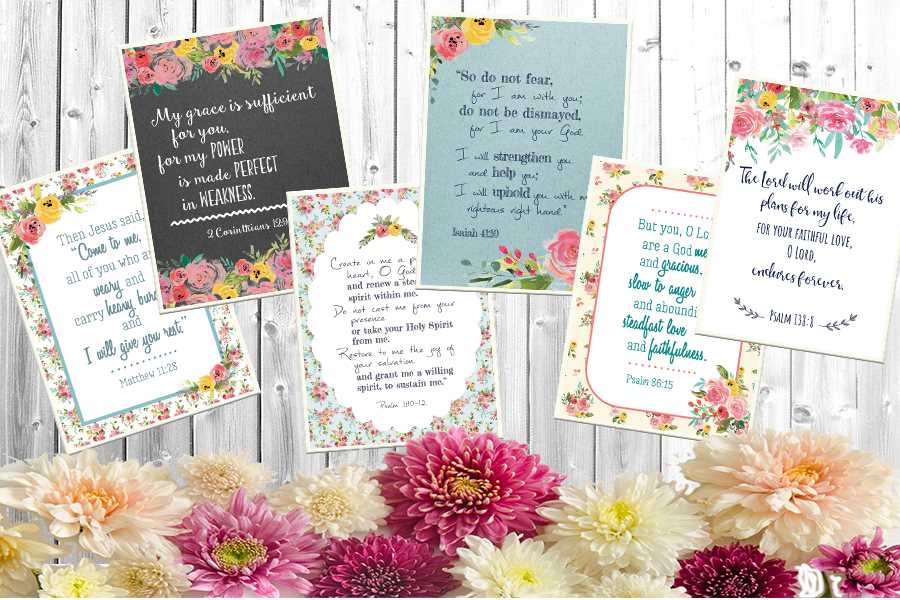 My grace is sufficient
for you,
for my POWER
is made PERFECT
in WEAKNESS.
2 Corinthians 12:9
"So do not fear,
for I am with you;
do not be dismayed,
for I am your God.
I will strengthen you
and help you;
I will uphold you with my
righteous right hand."
Isaiah 41:10
The Lord will work out his
plans for my life,
FOR YOUR FAITHFUL LOVE,
O LORD,
endures forever.
PSALM 138:8
Then Jesus said,
"Come to me,
all of you who
weary and
carry heavy
and
I will give you rest."
Matthew 11:28
Create in me a
heart, O God
and renew a
spirit within me.
Do not cast me from your
presence
or take your Holy Spirit
from me.
Restore to me the joy of
your salvation.
and grant me a willing
spirit, to sustain me."
Psalm
But you, O
are a God
and gracious,
slow to anger
and
steadfast love
and faithfulness.
Psalm 86:15